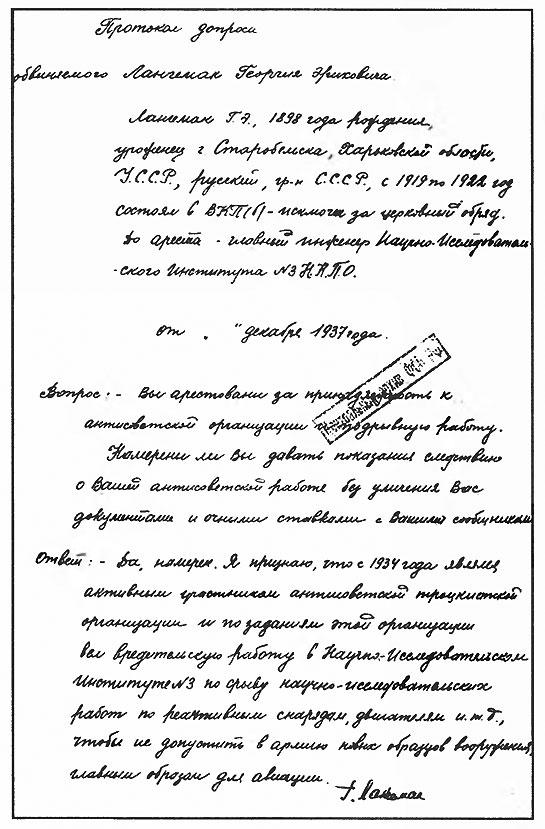 Протокол допроса
обвиняемого Лангемак Георгия Эриховича.
Лангемак Г.Э., 1898 года рождения,
уроженец г Старобельска, Харьковской области,
У.С.С.Р., русский, гр-н С.С.С.Р., с 1919 по 1922 год
состоял в ВКП(б) - исключен за церковный обряд.
До ареста - главный инженер Научно-Исследователь-
-ского Института №3 Н.К.П.О.
от „ " декабря 1937 года.
Вопрос: - Вы арестованы за принадлежность к
антисоветской организации и подрывную работу.
Намерены ли Вы давать показания следствию
о Вашей антисоветской работе без уличения Вас
документами и очными ставками с Вашими сообщниками
Ответ: - Да, намерен. Я признаю, что с 1934 года являлся
активным участником антисоветской троцкистской
организации и по заданиям этой организации
вел вредительскую работу в Научно-Исследовательском
Институте №3 по срыву научно-исследовательских
работ по реактивным снарядам, двигателям и.т.д.,
чтобы не допустить в армию новых образцов вооружения,
главным образом для авиации.
Г. Лангемак